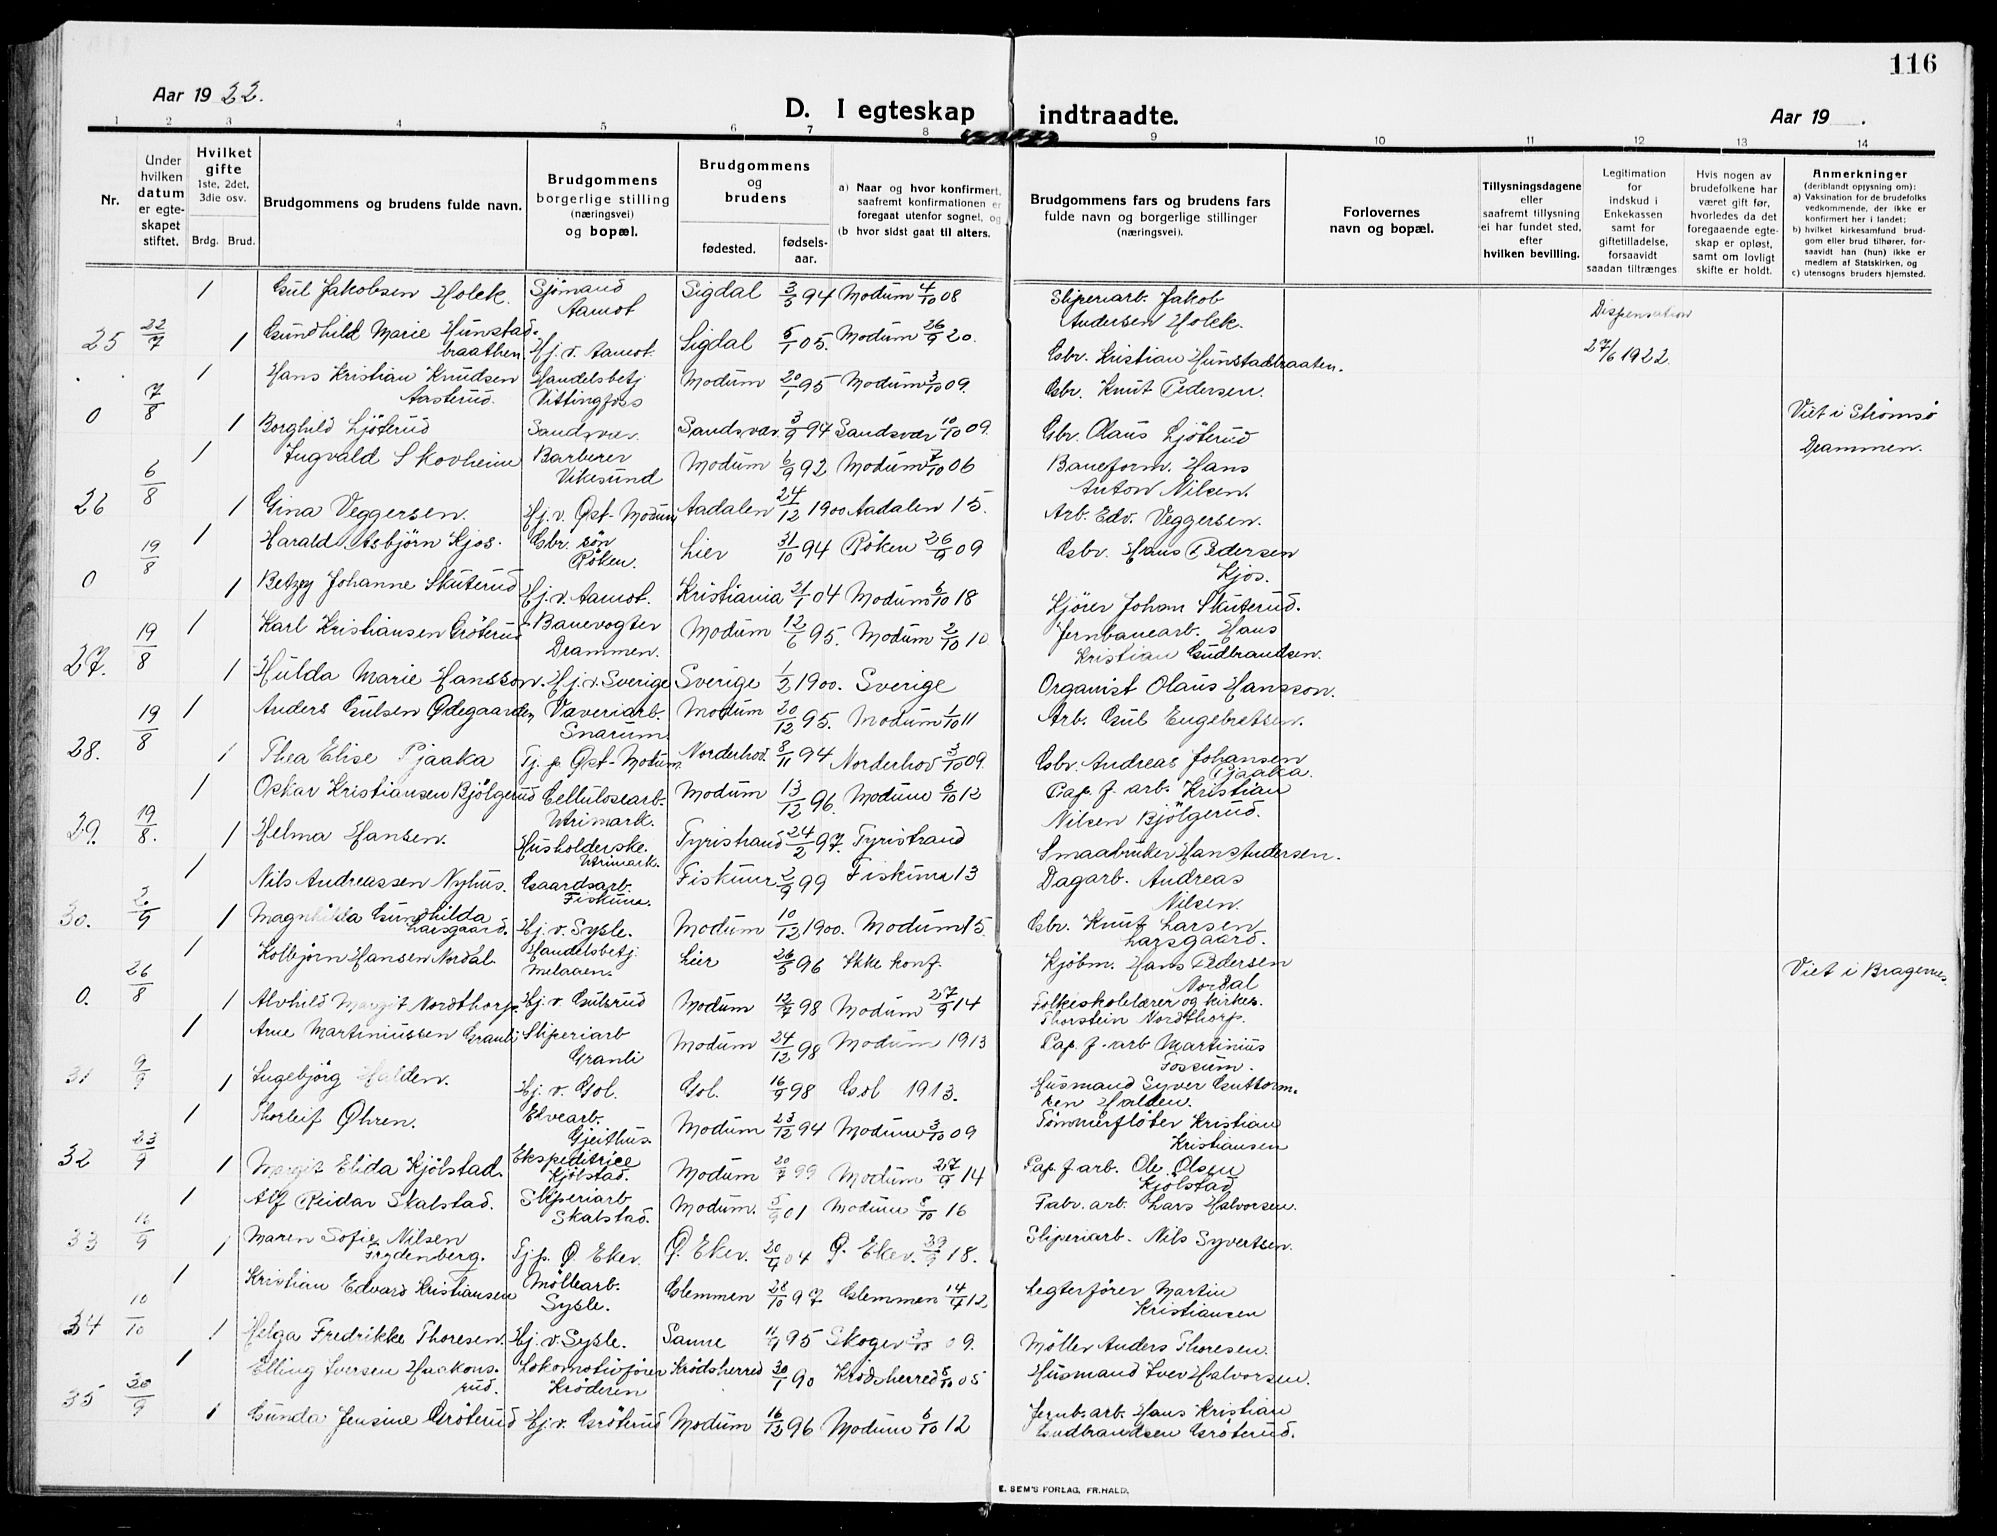 116
Aar 1922.
D. I egteskap indtraadte.
Aar 19 .
1 2 3 4 5 6 7 8 9 10 11 12 13 14
Nr.
Under hvilken datum er egteskapet stiftet.
Hvilket gifte 1ste, 2det, 3die osv.
Brdg. Brud.
Brudgommens og brudens fulde navn.
Brudgommens borgerlige stilling (næringsvei) og bopæl.
Brudgommens og brudens
fødested.
fødselsaar.
a) Naar og hvor konfirmert, saafremt konfirmationen er foregaat utenfor sognet, og
(b hvor sidst gaat til alters.
Brudgommens fars og brudens fars fulde navn og borgerlige stillinger (næringsvei).
Forlovernes navn og bopæl.
Tillysningsdagene eller saafremt tillysning ei har fundet sted, efter hvilken bevilling.
Legitimation for indskud i Enkekassen samt for giftetilladelse, forsaavidt saadan tiltrænges
Hvis nogen av brudefolkene har været gift før, hvorledes da det foregaaende egteskap er opløst, samt om lovligt skifte er holdt.
Anmerkninger (deriblandt oplysning om):
a) Vaksination for de brudefolks vedkommende, der ikke er konfirmert her i landet;
b) hvilket kirkesamfund brudgom eller brud tilhører, forsaavidt han (hun) ikke er medlem af Statskirken, og
c) utensogns bruders hjemsted.
1 Gul Jakobsen Holek. Sjömand Aamot Sigdal 3/5 94 Modum 4/10 08 Sliperiarb. Jakob Andersen Holek. Dispensation
25 22/7 1 Gundhild Marie Hunstadbraathen Hj. v. Aamot. Sigdal 5/1 05. Modum 26/9 20. Gbr. Kristian Hunstadbraaten. 27/6 1922.
1 Hans Kristian Knudsen Aasterud. Handelsbetj Vittingfoss Modum 20/1 95 Modum 3/10 09. Gbr. Knut Pedersen.
0 7/8 1 Borghild Ljöterud Sandsvær. Sandsvær. 3/9 94 Sandsvær 10/10 09. Gbr. Olaus Ljöterud Viet i Strømsø Drammen.
1 Ingvald Skovheim Barberer Vikesund Modum 6/9 92 Modum 7/10 06 Baneform. Hans Anton Nilsen.
26 6/8 1 Gina Veggersen. Hj. v. Øst-Modum Aadalen 24/12 1900 Aadalen 15. Arb. Edv. Veggersen.
1 Harald Asbjörn Kjos. Gbr. søn Röken. Lier 31/10 94 Röken 26/9 09 Gbr. Hans Pedersen Kjos.
0 19/8 1 Betzy Johanne Skuterud Hj. v. Aamot. Kristiania 21/1 04 Modum 6/10 18 Kjörer Johan Skuterud.
1 Karl Kristiansen Gröterud Banevogter Drammen. Modum 12/6 95. Modum 2/10 10 Jernbanearb. Hans Kristian Gudbrandsen.
27. 19/8 1 Hulda Marie Hansson. Hj. v. Sverige Sverige 1/2 1900. Sverige Organist Olaus Hansson.
1 Anders Gulsen Ødegaarden Væveriarb. Snarum. Modum 20/12 95. Modum 1/10 11 Arb. Gul Engebretsen.
28. 19/8 1 Thea Elise Pjaaka Tj. p. Øst-Modum. Norderhov. 8/11 94 Norderhov 3/10 09. Gbr. Andreas Johansen Pjaaka.
1 Oskar Kristiansen Bjölgerud Cellulosearb. Modum 13/12 96. Modum 6/10 12 Pap. f. arb. Kristian Nilsen Bjölgerud.
29. 19/8. 1 Helma Hansen. Husholderske. Tyristrand 24/2 97. Tyristrand Smaabruker Hans Andersen.
1 Nils Andreassen Nyhus. Gaardsarb. Fiskum. Fiskum 2/9 99 Fiskum 13 Dagarb. Andreas Nilsen.
30. 2/9 1 Magnhilda Gunhilda Larsgaard. Hj. v. Sysle. Modum 10/12 1900. Modum 15. Gbr. Knut Larsen Larsgaard.
1 Kolbjörn Hansen Nordal Handelsbetj. Melaaen. Lier 26/5 96 Ikke konf. Kjöbm. Hans Pedersen Nordal Viet i Bragernes.
0. 26/8 1 Alvhild Margit Nordthorp. Hj. v. Gulsrud Modum 12/7 98 Modum 27/9 14 Folkeskolelærer og kirkes. Thorstein Nordthorp.
1 Arne Martiniussen Granli Sliperiarb Granli Modum 24/12 98 Modum 1913 Pap. f. arb Martinius Fossum.
31 9/9 1 Ingebjörg Halden. Hj. v. Gol. Gol. 16/9 98 Gol 1913. Husmand Syver Guttormsen Halden.
1 Thorleif Øhren. Elvearb. Gjeithus. Modum 23/12 94 Modum 3/10 09 Tömmerflöter Kristian Kristiansen
32 23/9 1 Margit Elida Kjölstad. Ekspeditrice Kjölstad. Modum 20/7 99 Modum 27/9 14 Pap. f. arb. Ole Olsen Kjölstad
1 Alf Reidar Skalstad. Sliperiarb Skalstad. Modum. 5/9 01 Modum 8/10 16 Fabr. arb. Lars Halvorsen.
33 16/9 1 Maren Sofie Nilsen Frydenberg. Tj. p. Ø. Eker. Ø. Eker. 20/4 04 Ø. Eker. 18. Sliperiarb. Nils Syvertsen.
1 Kristian Edvard Kristiansen Möllearb. Sysle. Glemmen 28/10 97 Glemmen 14/4 12 Legterförer Martin Kristiansen
34 10/10 1 Helga Fredrikke Thoresen. Hj. v. Sysle. Sanne 11/9 95 Skoger 3/10 09. Möller Anders Thoresen.
1 Elling Iversen Haakonsrud. Lokomotivförer Kröderen Krödsherred 30/1 90 Krödsherred 8/10 05 Husmand Iver Halvorsen.
35 30/9 1 Gunda Jensine Gröterud Hj. v. Gröterud Modum 16/12 96 Modum 6/10 12 Jernb. arb. Hans Kristian Gudbrandsen Gröterud.
E. SEM'S FORLAG, FR.HALD.